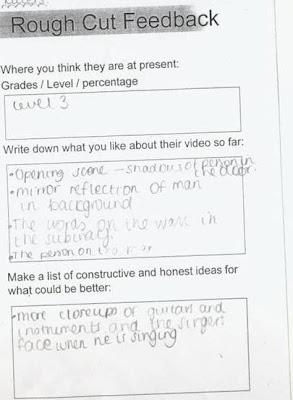 Rough Cut Feedback
Where you think they are at present:
Grades / Level / percentage
Level 3
Write down what you like about their video so far:
•Opening scene – shadow of person in
the door.
•mirror reflection of man
in background
•The words on the wall in
the subway.
•The person on
Make a list of constructive and honest ideas for
what could be better:
•more closeups of guitars and
instruments and the singers
face when he is singing